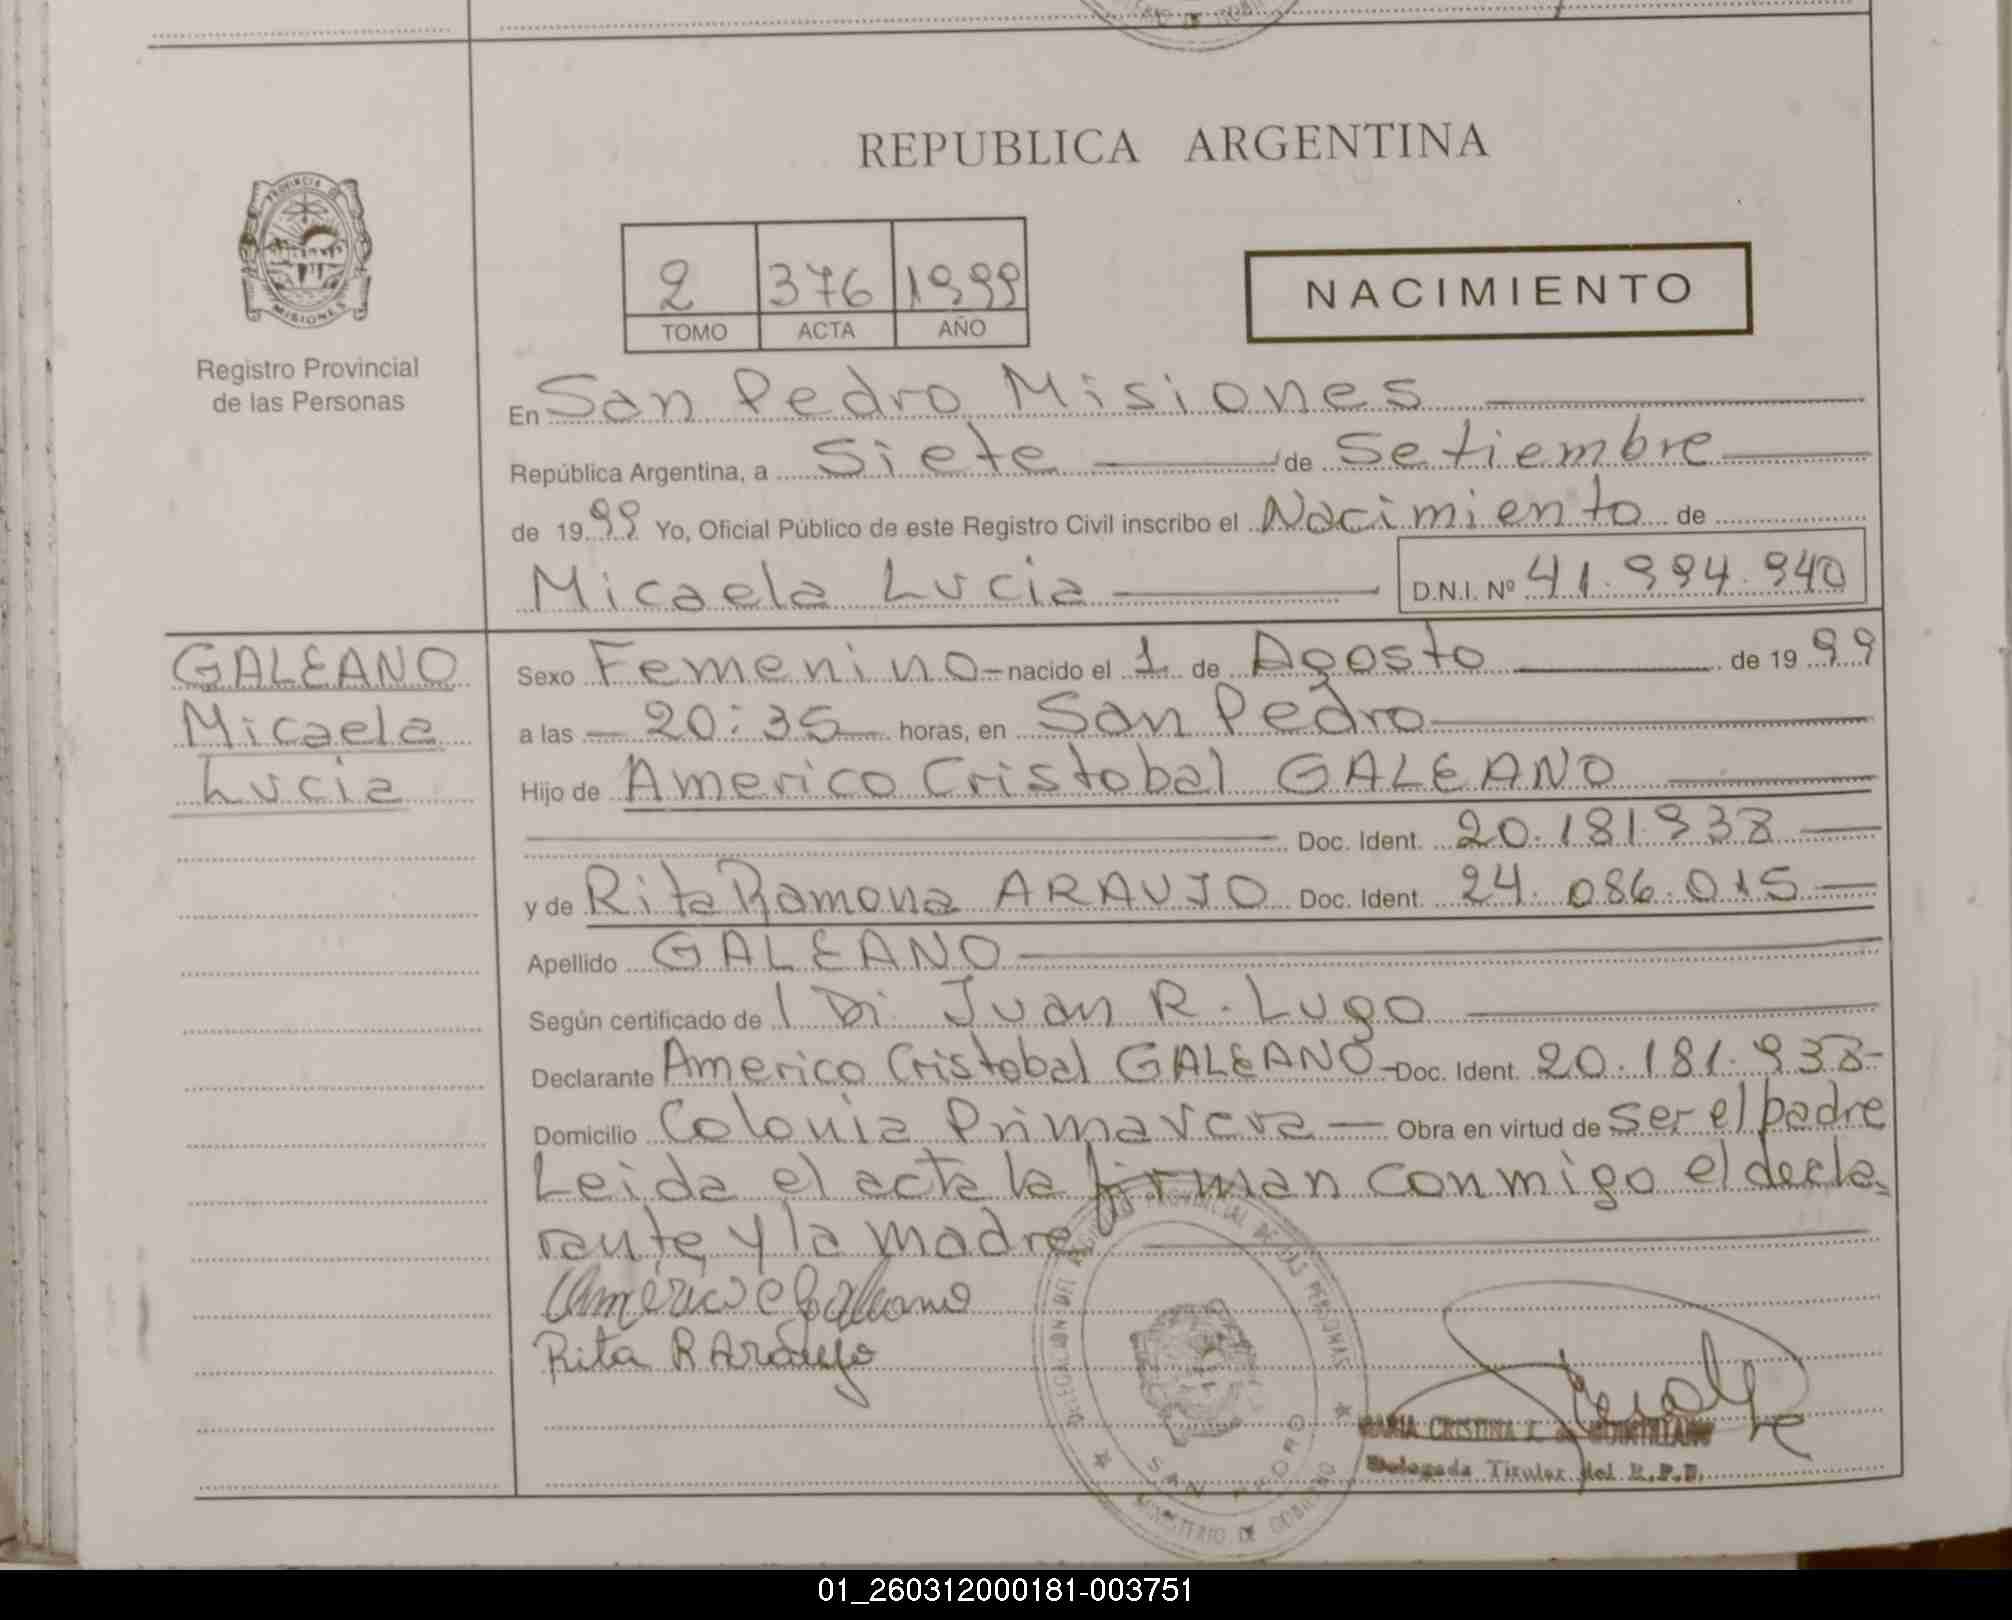 REPUBLICA ARGENTINA
PROVINCIA DE
MISIONES
Registro Provincial
de las Personas
2 376 1999
TOMO ACTA AÑO
NACIMIENTO
En San Pedro Misiones
República Argentina, a Siete de Setiembre
de 1999 Yo, Oficial Público de este Registro Civil inscribo el Nacimiento de
Micaela Lucia D.N.I. Nº 41.994.940
GALEANO
Micaela
Lucia
Sexo Femenino nacido el 1 de Agosto de 1999
a las 20:35 horas, en San Pedro
Hijo de Americo Cristobal GALEANO
Doc. Ident. 20.181.938
y de Rita Ramona ARAUJO Doc. Ident. 24.086.015
Apellido GALEANO
Según certificado de Juan R. Lugo
Declarante Americo Cristobal GALEANO Doc. Ident. 20.181.938
Domicilio Colonia Primavera Obra en virtud de ser el padre
Leida el acta la firman conmigo el decla-
rante y la madre
Américo C Galeano
Rita R Araujo
PROVINCIAL DE LAS PERSONAS
SAN PEDRO
MINISTERIO DE GOBIERNO
MARIA CRISTINA
Delegada Titular del R.P.P.
01_260312000181-003751